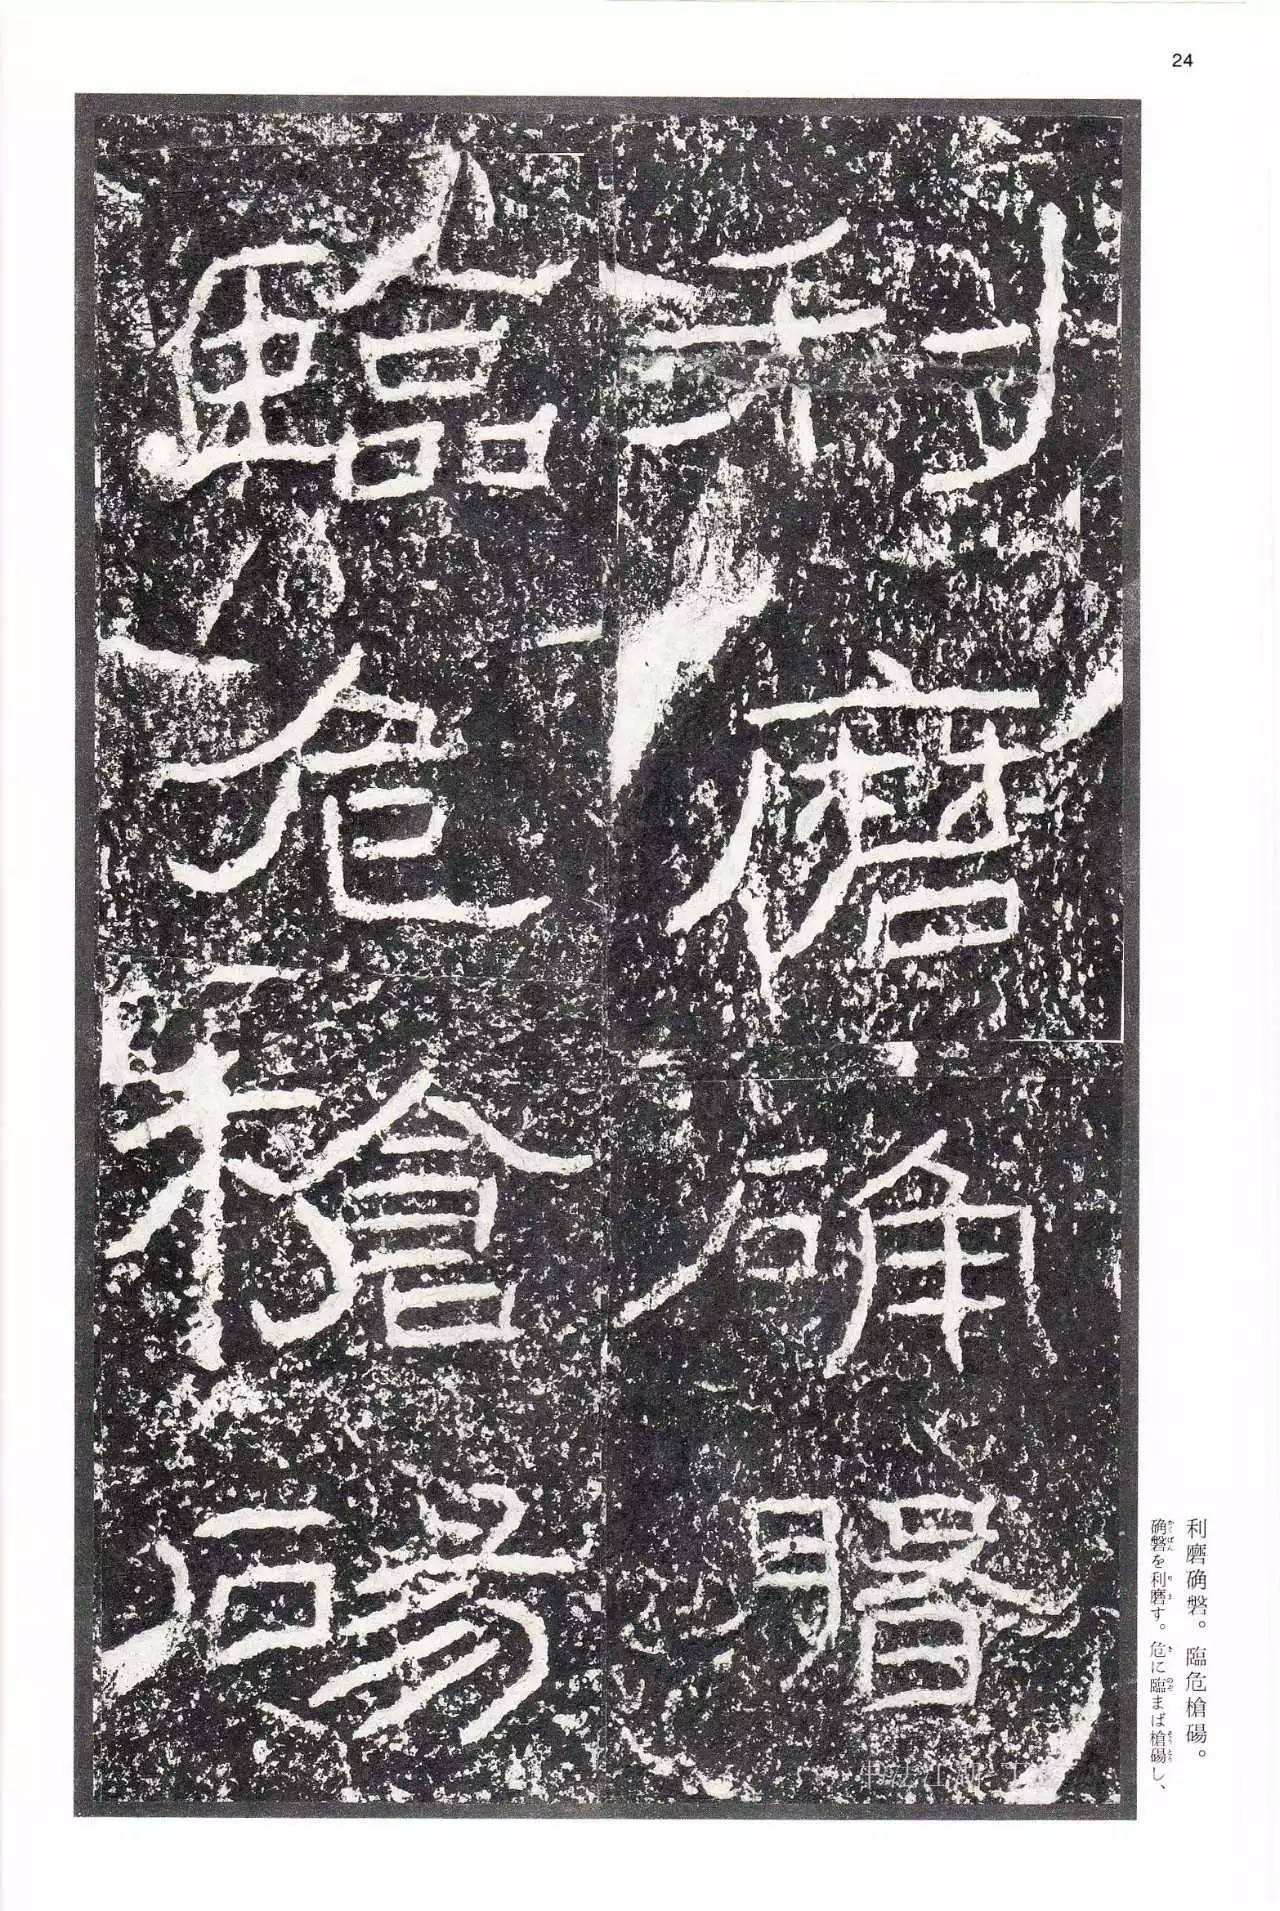 24
利磨确磐
臨危槍碭
利磨确磐。臨危槍碭。
确磐を利磨す。危に臨まば槍碭し、